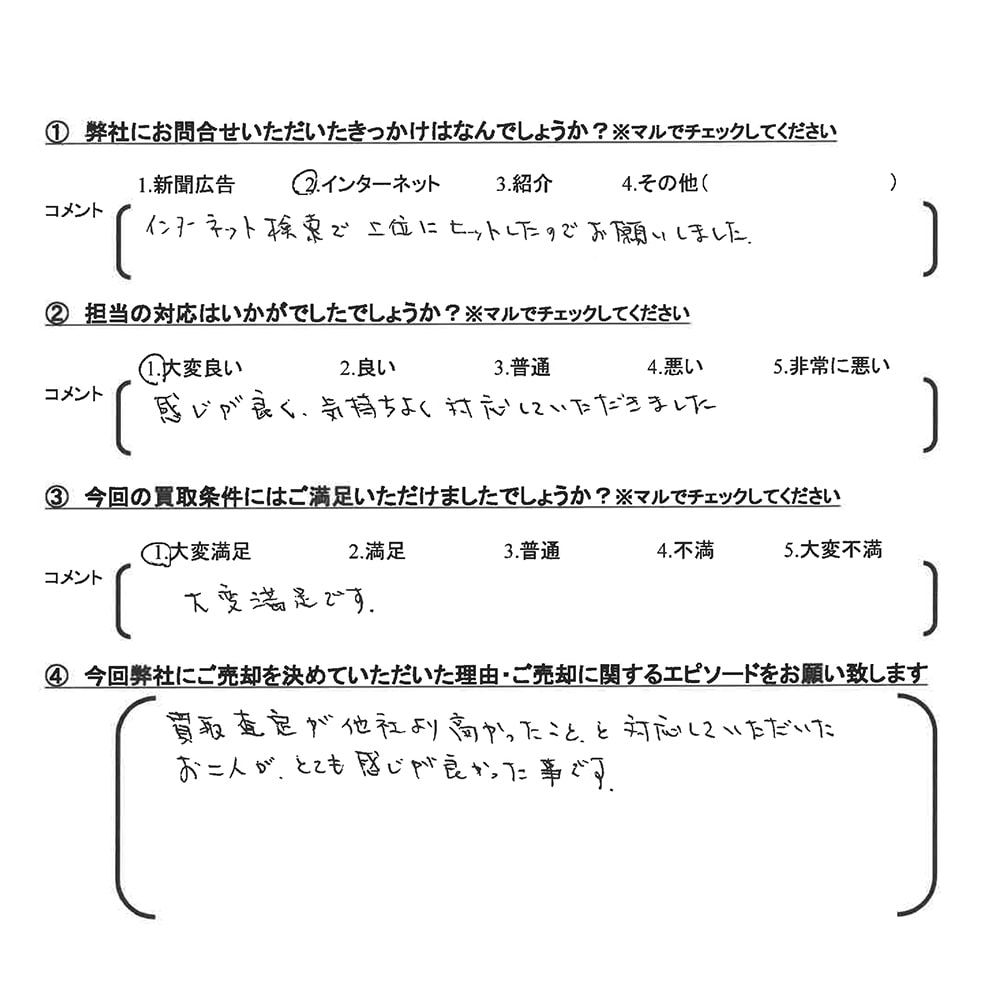 ① 弊社にお問合せいただいたきっかけはなんでしょうか?※マルでチェックしてください
1.新聞広告 2.インターネット 3.紹介 4.その他( )
コメント
インターネット検索で上位にヒットしたのでお願いしました.
② 担当の対応はいかがでしたでしょうか?※マルでチェックしてください
1.大変良い 2.良い 3.普通 4.悪い 5.非常に悪い
コメント
感じが良く、気持ちよく対応していただきました
③ 今回の買取条件にはご満足いただけましたでしょうか?※マルでチェックしてください
1.大変満足 2.満足 3.普通 4.不満 5.大変不満
コメント
大変満足です.
④ 今回弊社にご売却を決めていただいた理由・ご売却に関するエピソードをお願い致します
買取査定が他社より高かったこと、と対応していただいた
お二人が、とても感じが良かった事です.